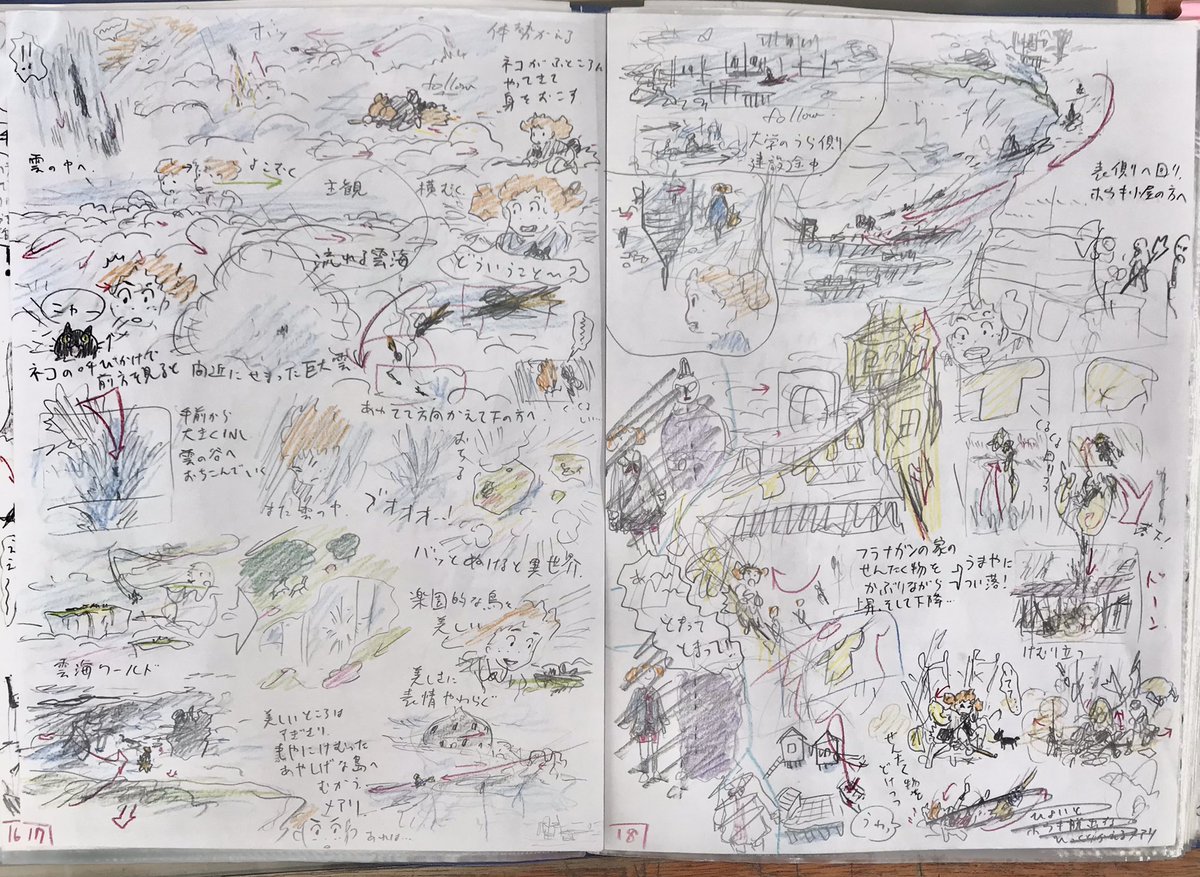 !!
ボッ
follow
体勢かえる
ネコがふところに
やってきて
身をおこす
雲の中へ
よこでく
主観
横むく
流れる雲海
どういうこと〜?
ニャー
ネコの呼びかけで
前方を見ると
間近にせまった巨雲
あわてて方向かえて下の方へ
手前から
大きくINし
雲の谷へ
おちこんでいく
また雲の中
ブオオオー!
おちる
バッとぬけると異世界
楽園的な島々
美しい
雲海ワールド
美しさに
表情やわらぐ
美しいところは
すぎさり
むかう
メアリ
あやしげな島へ
あれは…
16 17
follow
大学のうら側
建設途中
表側へ回り
ホウキ小屋の方へ
フラナガンの家の
せんたく物を
かぶりながら
上昇そして下降…
うまやに
つい落!
落ス!
ドーン
けむり立つ
とまって
とまって!!
せんたく物を
どけつつ
うわっ
ひょいと
18